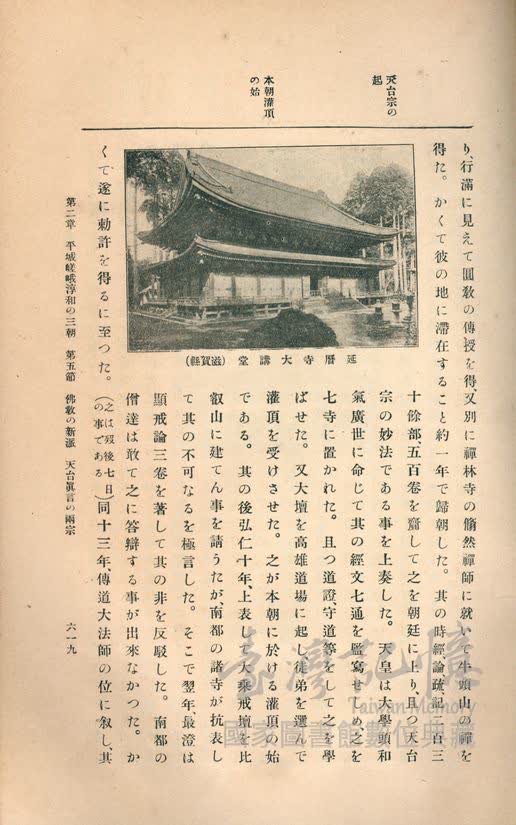 天台宗の
起
本朝灌頂
の始
り、行滿に見えて圓敎の傳授を得、又別に禪林寺の翛然禪師に就いて牛頭山の禪を
得た。かくて彼の地に滯在すること約一年で歸朝した。其の時經論疏記二百三
十餘部、五百卷を齎して之を朝廷に上り、且つ天台
宗の妙法である事を上奏した。天皇は大學頭和
氣廣世に命じて其の經文七通を監寫せしめ之を
七寺に置かれた。且つ道證、守道等をして之を學
ばせた。又大壇を高雄道場に起し徒弟を選んで
灌頂を受けさせた。之が本朝に於ける灌頂の始
である。其の後弘仁十年、上表して大乘戒壇を比
叡山に建てん事を請うたが、南都の諸寺が抗表し
て其の不可なるを極言した。そこで翌年、最澄は
顯戒論三卷を著して其の非を反駁した。南都の
僧達は敢て之に答辯する事が出來なかつた。か
くて遂に勅許を得るに至つた。(之は歿後七日の事である)同十三年、傳道大法師の位に叙し、其
延曆寺大講堂 (滋賀縣)
第二章 平城嵯峨淳和の三朝 第五節 佛敎の新派 天台眞言の兩宗
六一九
臺灣記憶
Taiwan Memory
國家圖書館數位典藏